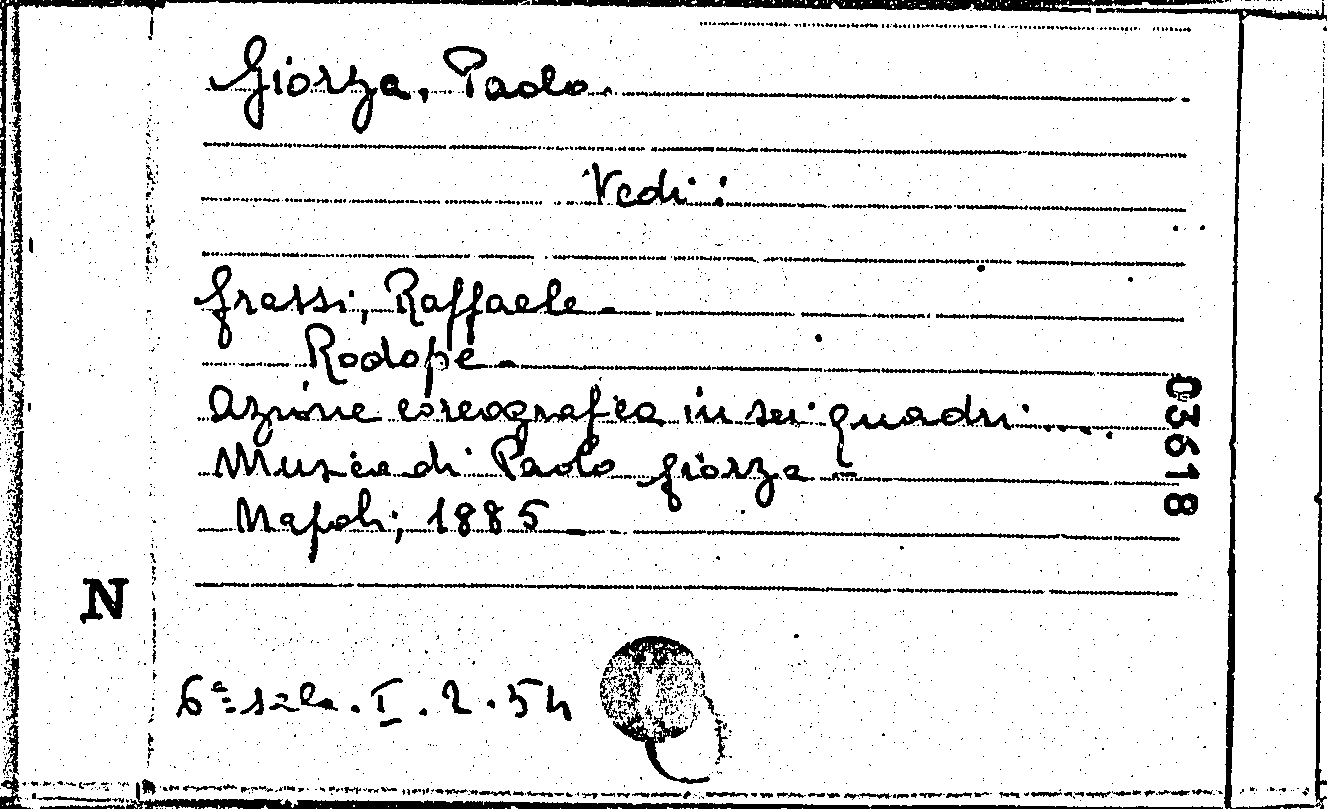 Giorza, Paolo.
Vedi:
Grassi, Raffaele -
Rodope -
Azione coreografica in sei quadri ....
Musica di Paolo Giorza -
Napoli, 1885 -
03618
N
6ª sala. I. 2. 54